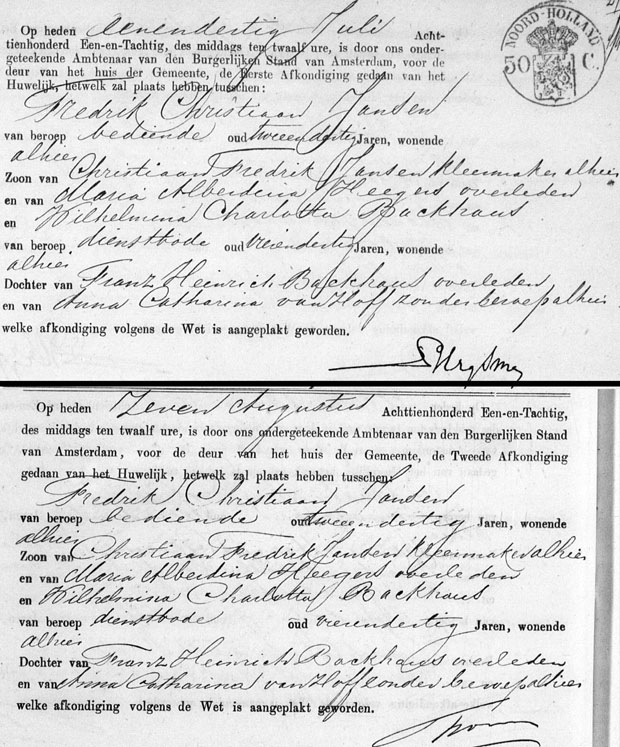 NOORD-HOLLAND
50 C.
Op heden Eenendertig Juli Acht-
tienhonderd Een-en-Tachtig, des middags ten twaalf ure, is door ons onder-
geteekende Ambtenaar van den Burgerlijken Stand van Amsterdam, voor de
deur van het huis der Gemeente, de Eerste Afkondiging gedaan van het
Huwelijk, hetwelk zal plaats hebben tusschen:
Fredrik Christiaan Jansen
van beroep bediende oud tweeendertig Jaren, wonende
alhier
Zoon van Christiaan Fredrik Jansen kleermaker alhier
en van Maria Alberdina Heegers overleden
en Wilhelmina Charlotta Backhaus
van beroep dienstbode oud vierendertig Jaren, wonende
alhier
Dochter van Franz Heinrich Backhaus overleden
en van Anna Catharina van Hoff zonder beroep alhier
welke afkondiging volgens de Wet is aangeplakt geworden.
Op heden Zeven Augustus Achttienhonderd Een-en-Tachtig,
des middags ten twaalf ure, is door ons ondergeteekende Ambtenaar van den Burgerlijken Stand
van Amsterdam, voor de deur van het huis der Gemeente, de Tweede Afkondiging
gedaan van het Huwelijk, hetwelk zal plaats hebben tusschen:
Fredrik Christiaan Jansen
van beroep bediende oud tweeendertig Jaren, wonende
alhier
Zoon van Christiaan Fredrik Jansen kleermaker alhier
en van Maria Alberdina Heegers overleden
en Wilhelmina Charlotta Backhaus
van beroep dienstbode oud vierendertig Jaren, wonende
alhier
Dochter van Franz Heinrich Backhaus overleden
en van Anna Catharina van Hoff zonder beroep alhier
welke afkondiging volgens de Wet is aangeplakt geworden.